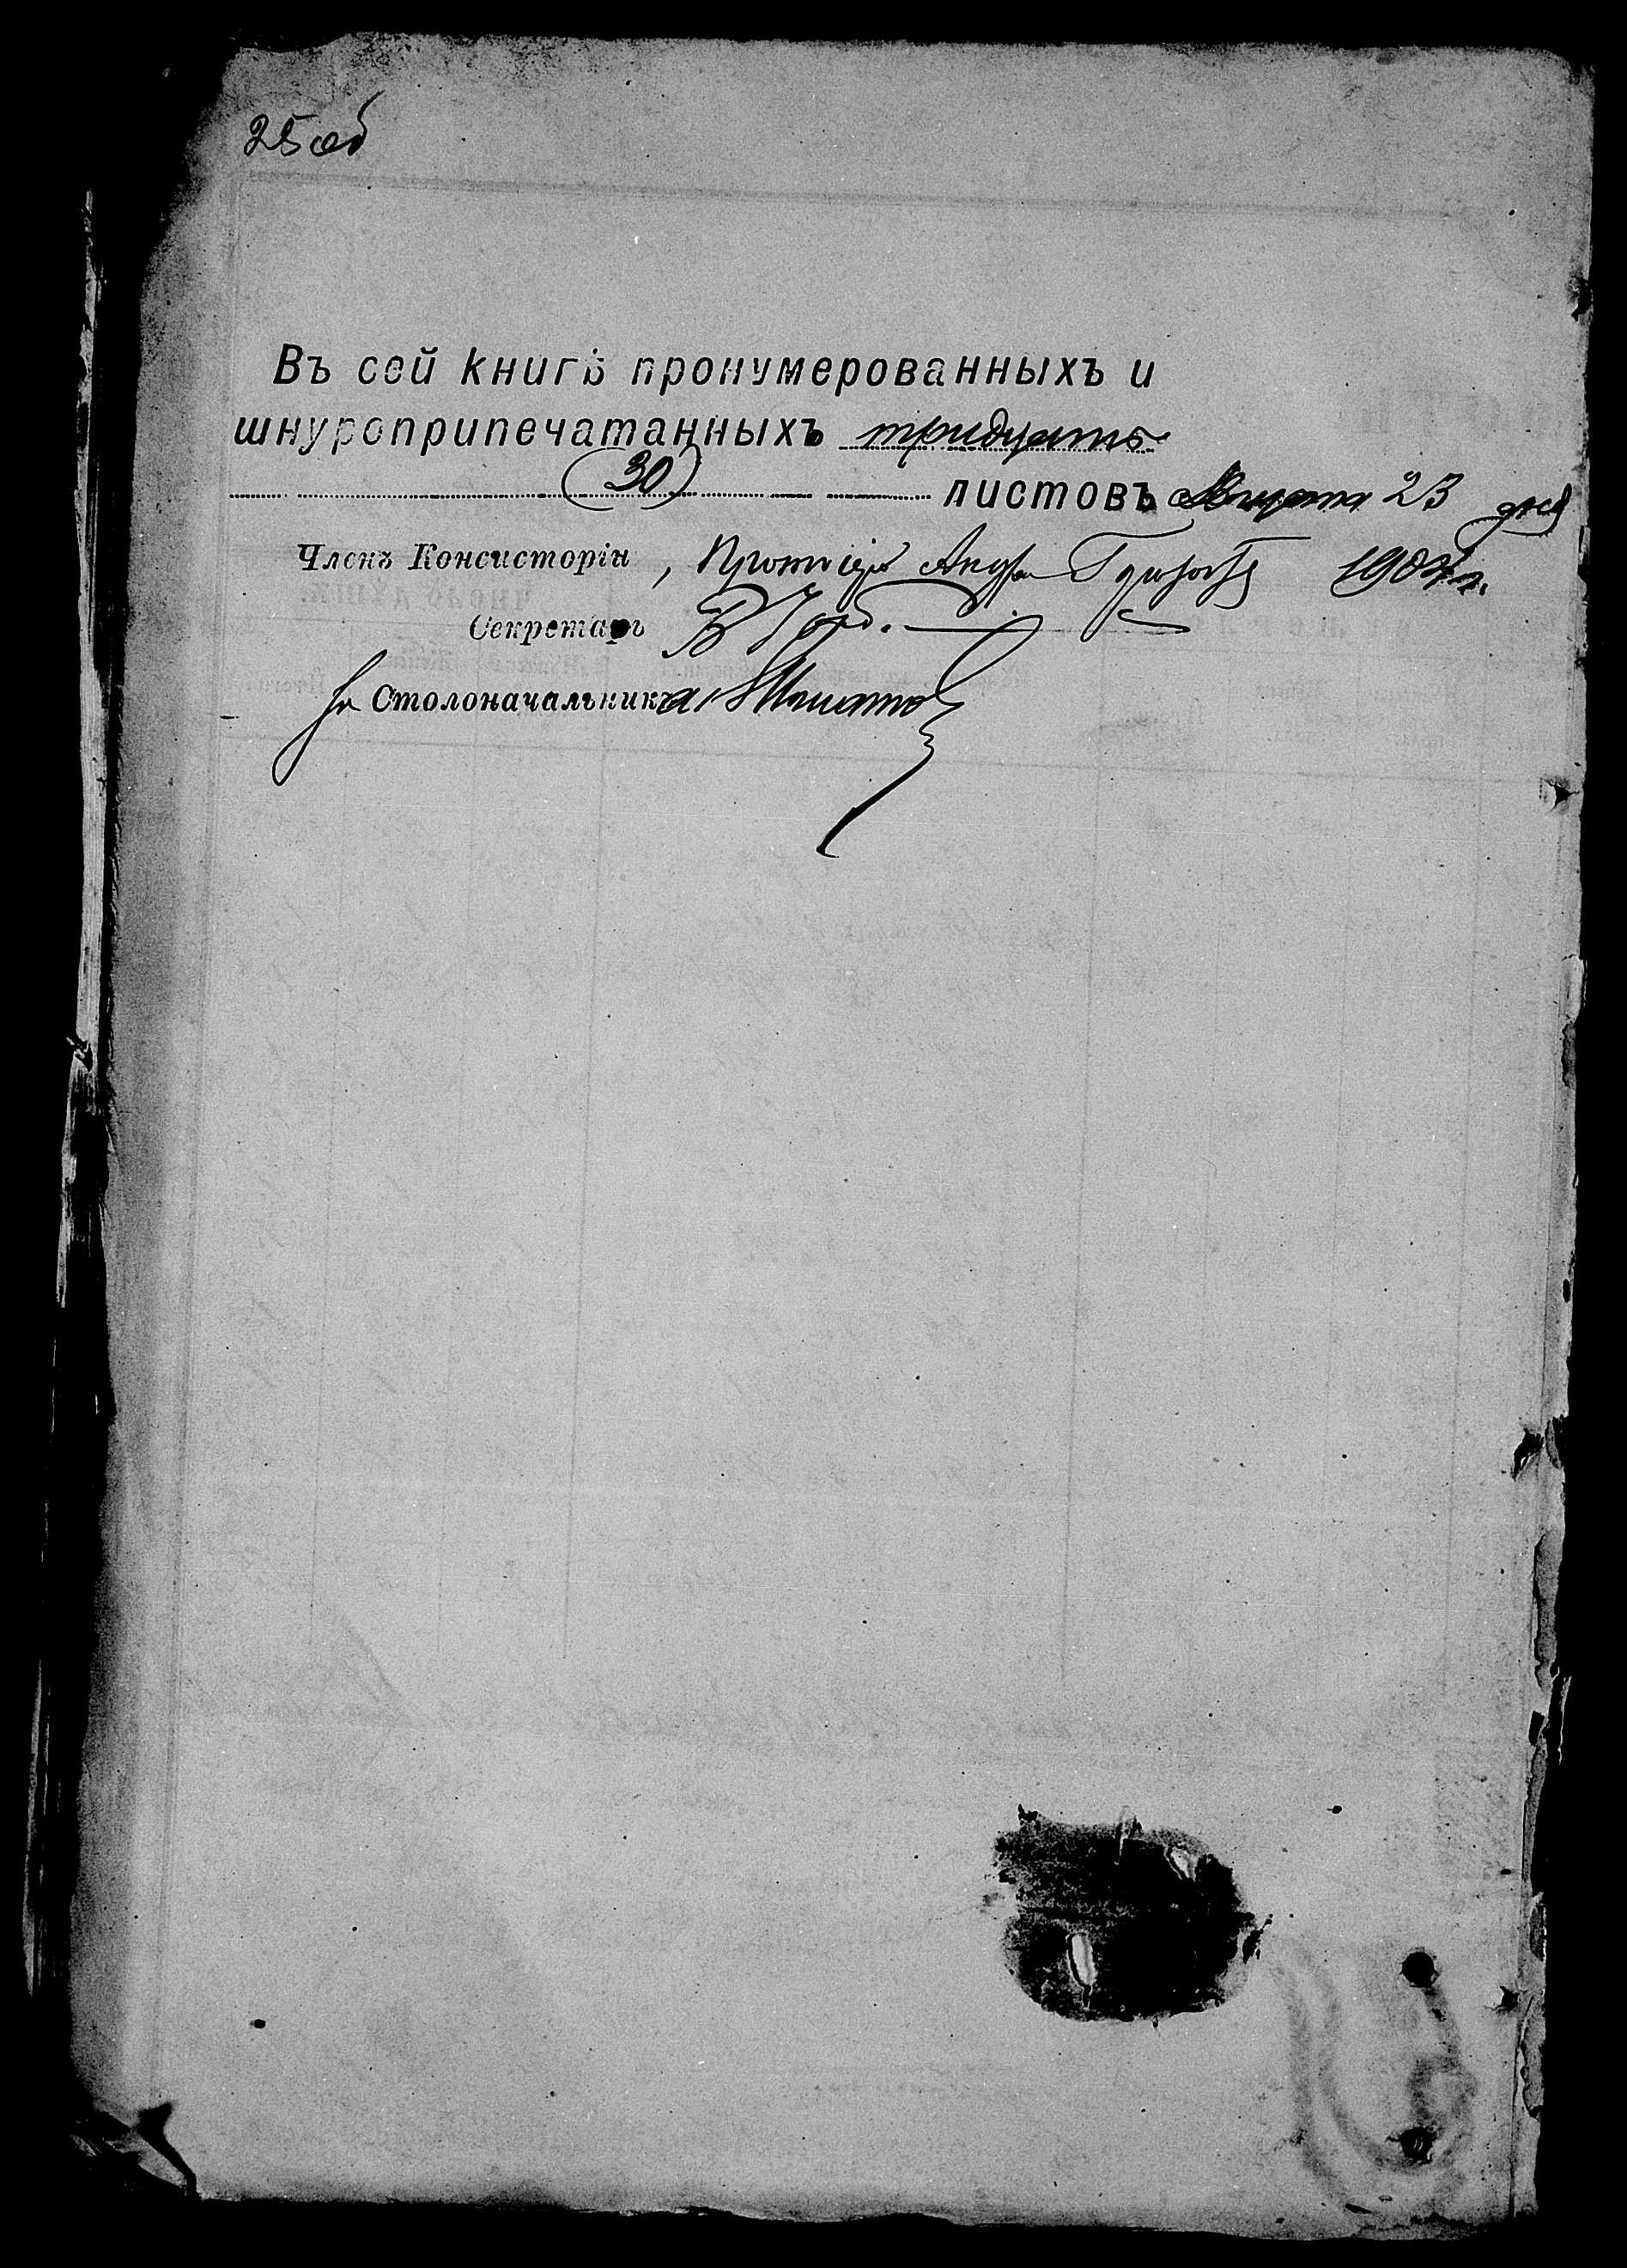 25 об
Въ сей книгѣ пронумерованныхъ и
шнуроприпечатанныхъ тридцать
(30) листовъ Августа 23 дня
Членъ Консисторіи, Протоіерей Андрей 190 г.
Секретарь В
За Столоначальника